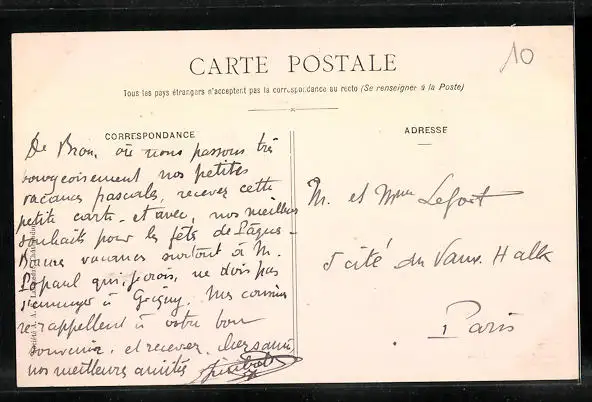 10
CARTE POSTALE
Tous les pays étrangers n'acceptent pas la correspondance au recto (Se renseigner à la Poste)
CORRESPONDANCE
ADRESSE
De Brou, où nous passons très
bourgeoisement nos petites
vacances pascales, recevez cette
petite carte et avec, nos meilleurs
souhaits pour les fêtes de Pâques -
Bonnes vacances surtout à M.
qui, je crois, ne dois pas
s'ennuyer à Grigny. Mes cousins
se rappellent à votre bon
souvenir, et recevez, chers amis,
nos meilleures amitiés
M. et Mme Lefort
5 cité du Vaux. Hall
Paris